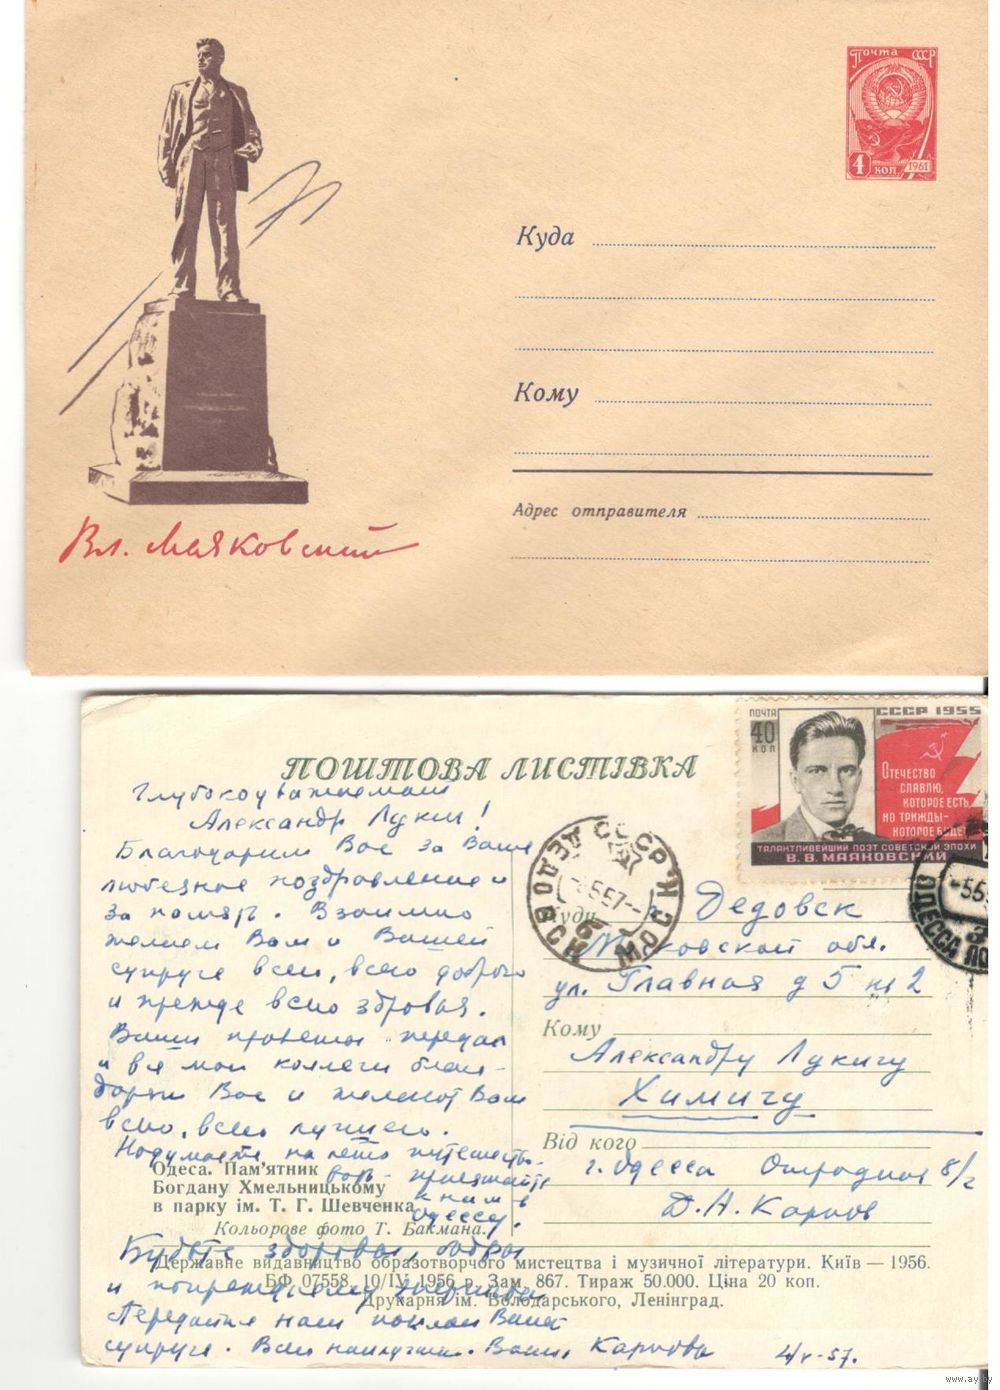 Почта СССР
4 коп. 1961
Куда
Кому
Адрес отправителя
Вл. Маяковский
ПОЧТА
СССР 1955
40
КОП
ОТЕЧЕСТВО
СЛАВЛЮ,
КОТОРОЕ ЕСТЬ,
НО ТРИЖДЫ-
КОТОРОЕ БУДЕТ
ТАЛАНТЛИВЕЙШИЙ ПОЭТ СОВЕТСКОЙ ЭПОХИ
В. В. МАЯКОВСКИЙ
ПОШТОВА ЛИСТІВКА
Глубокоуважаемый
Александр Лукич!
Благодарим Вас за Ваше
любезное поздравление и
за память. Взаимно
желаем Вам и Вашей
супруге всего, всего доброго
и прежде всего здоровья.
Ваши приветы передал
и все мои коллеги благо-
дарят Вас и желают Вам
всего, всего лучшего.
Надумаете на лето путешество-
вать - приезжайте
к нам в
Одессу.
Будьте здоровы, бодры
и попрежнему энергичны.
Передайте наш поклон Вашей
супруге. Всего наилучшего. Ваши Карповы
4/V-57.
СССР
ДЕДОВСК
МОСК
5.5.57
ОДЕССА
Куди
Дедовск
Московской обл.
ул. Главная д 5 кв 2
Кому
Александру Лукичу
Химичу
Від кого
г. Одесса Отрадная 8/2
Д. А. Карпов
Одеса. Пам'ятник
Богдану Хмельницькому
в парку ім. Т. Г. Шевченка
Кольорове фото Т. Бакмана.
Державне видавництво образотворчого мистецтва і музичної літератури. Київ — 1956.
БФ 07558. 10/IV 1956 р. Зам. 867. Тираж 50.000. Ціна 20 коп.
Друкарня ім. Володарського, Ленінград.
www.ay.by